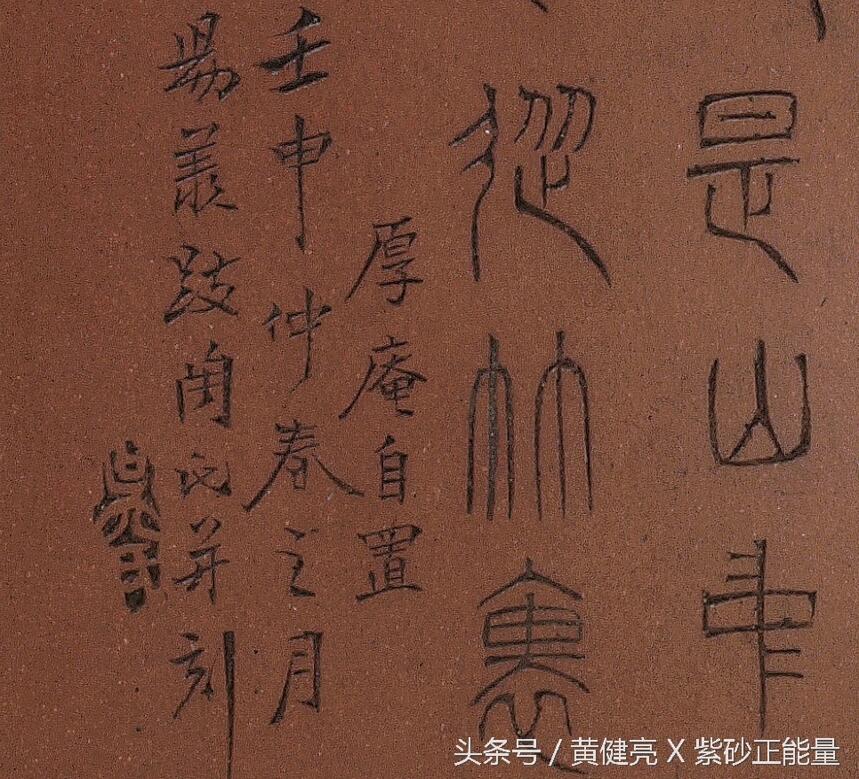 是山中
從竹裏
厚庵自置
壬申仲春之月
昜羨跂匋民并刻
头条号 / 黄健亮 X 紫砂正能量